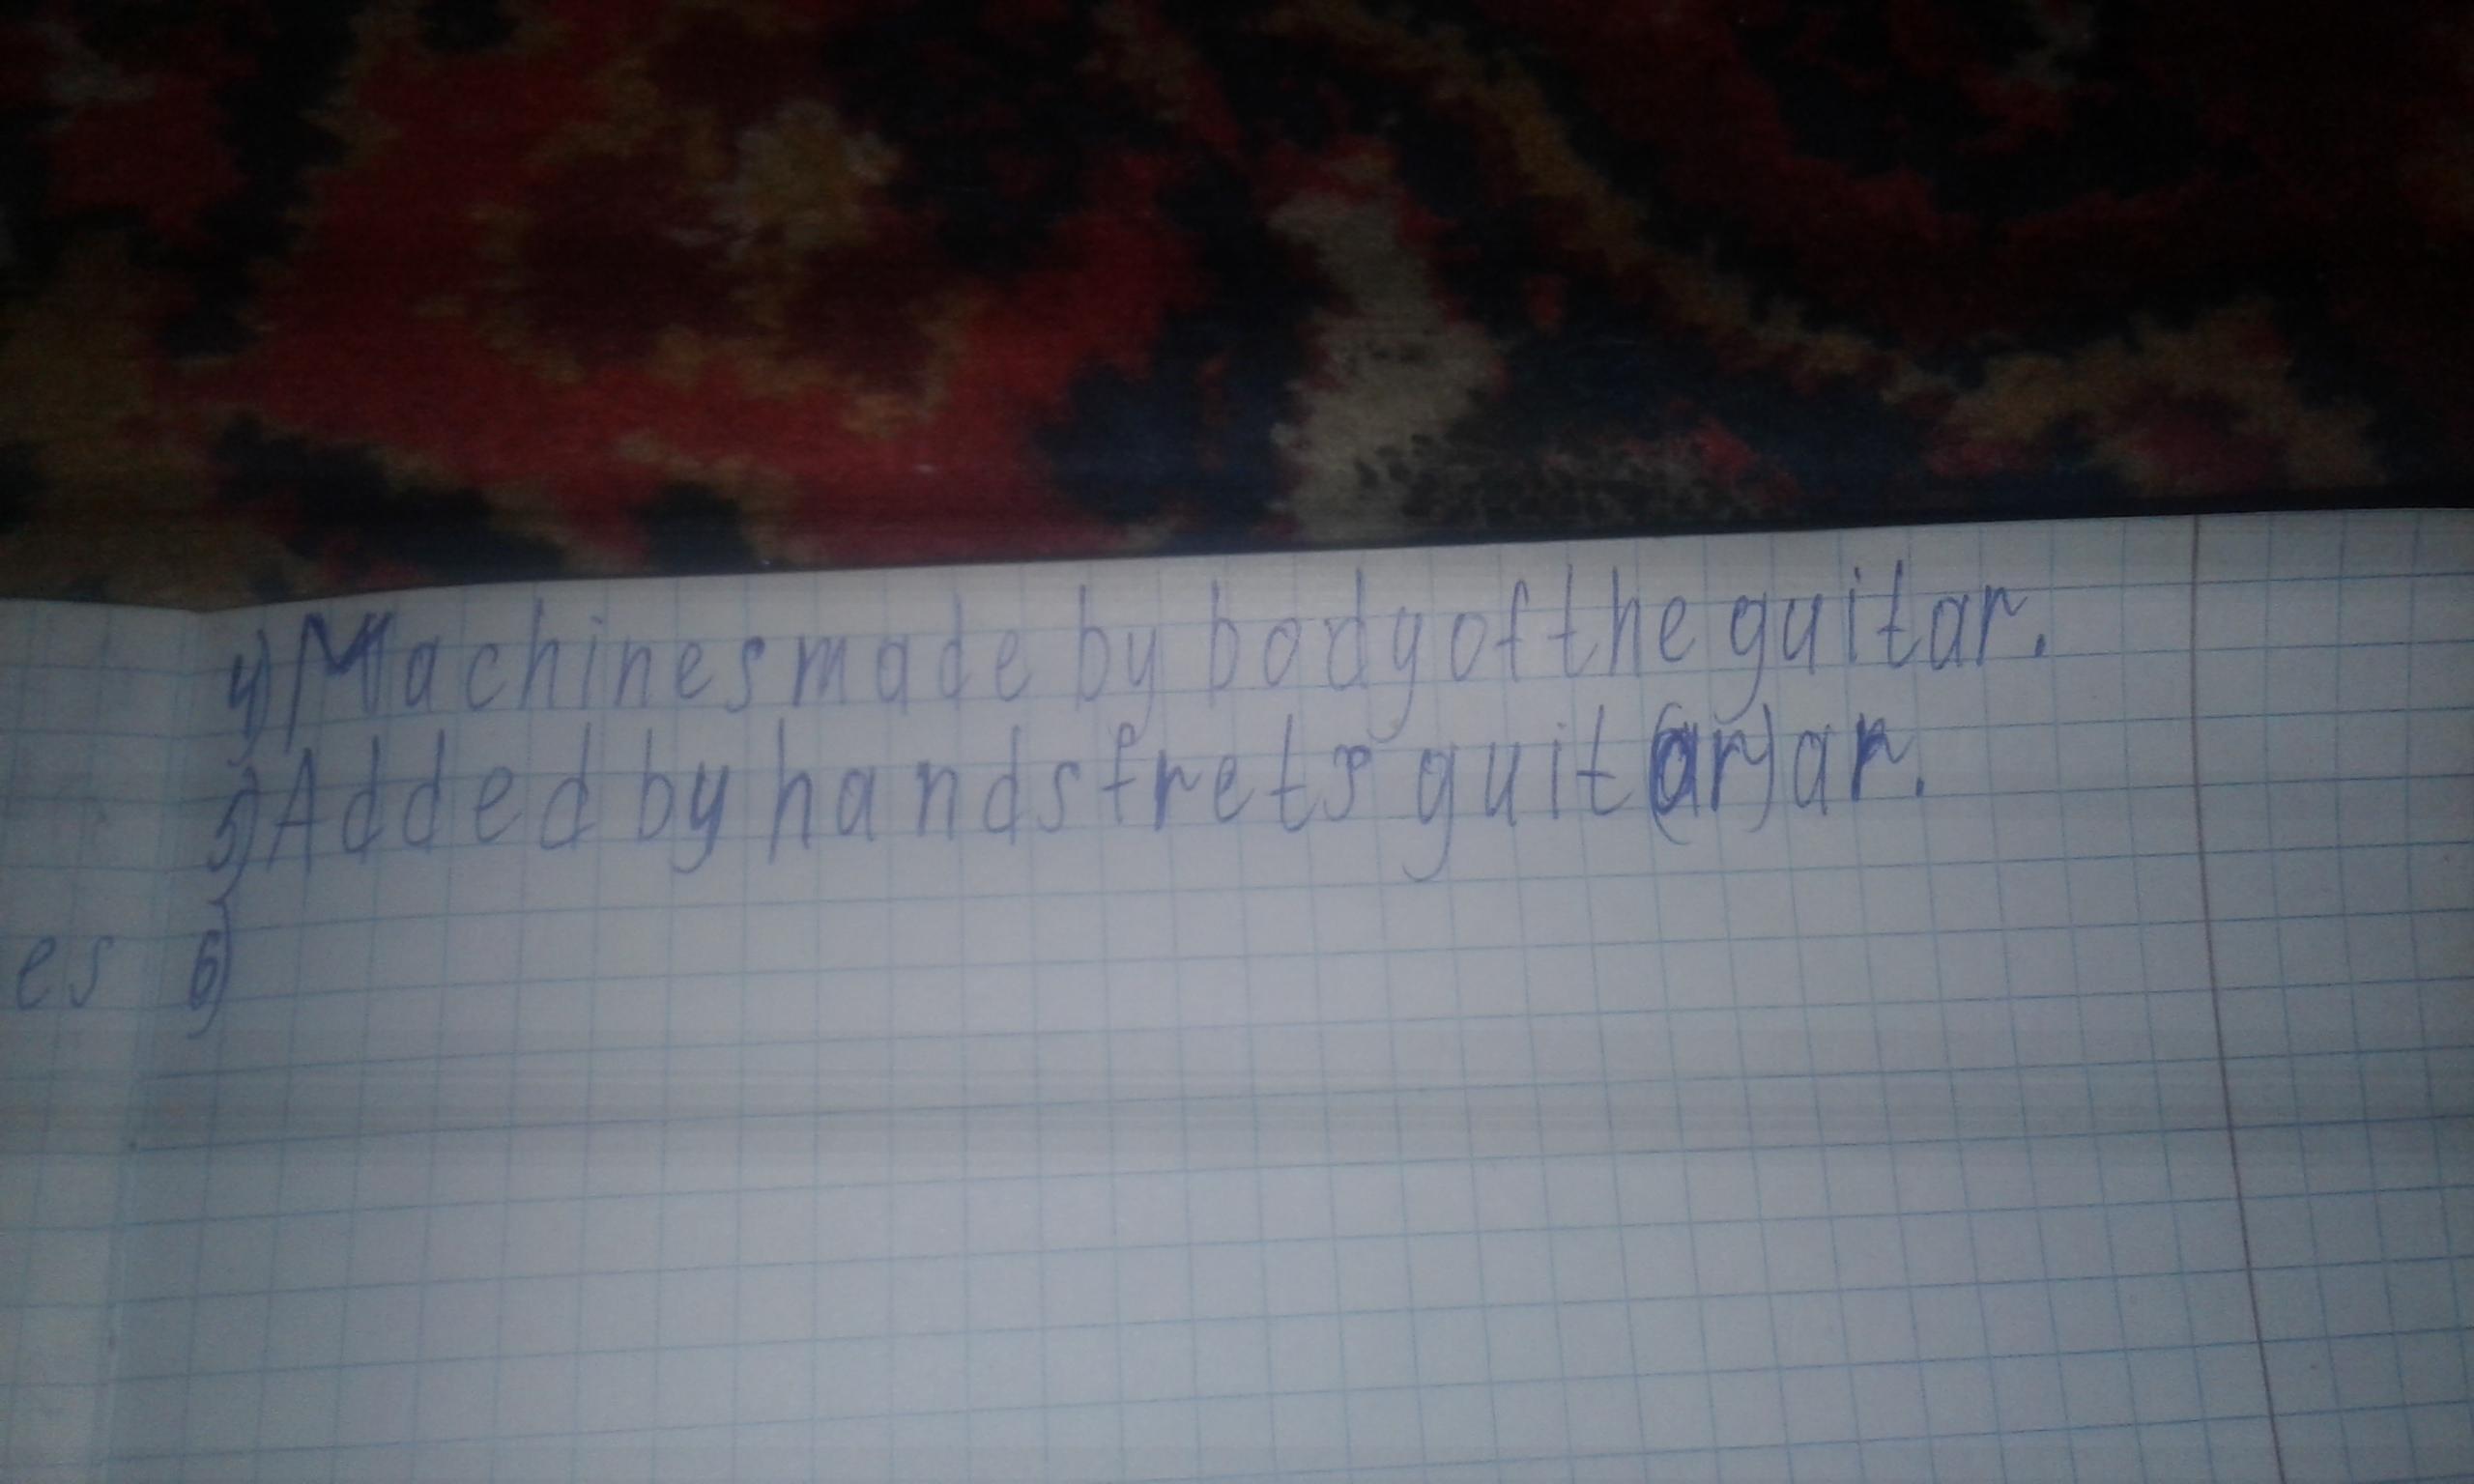 4) Machines made by body of the guitar.
5) Added by hands frets guit(ar)ar.
es 6)